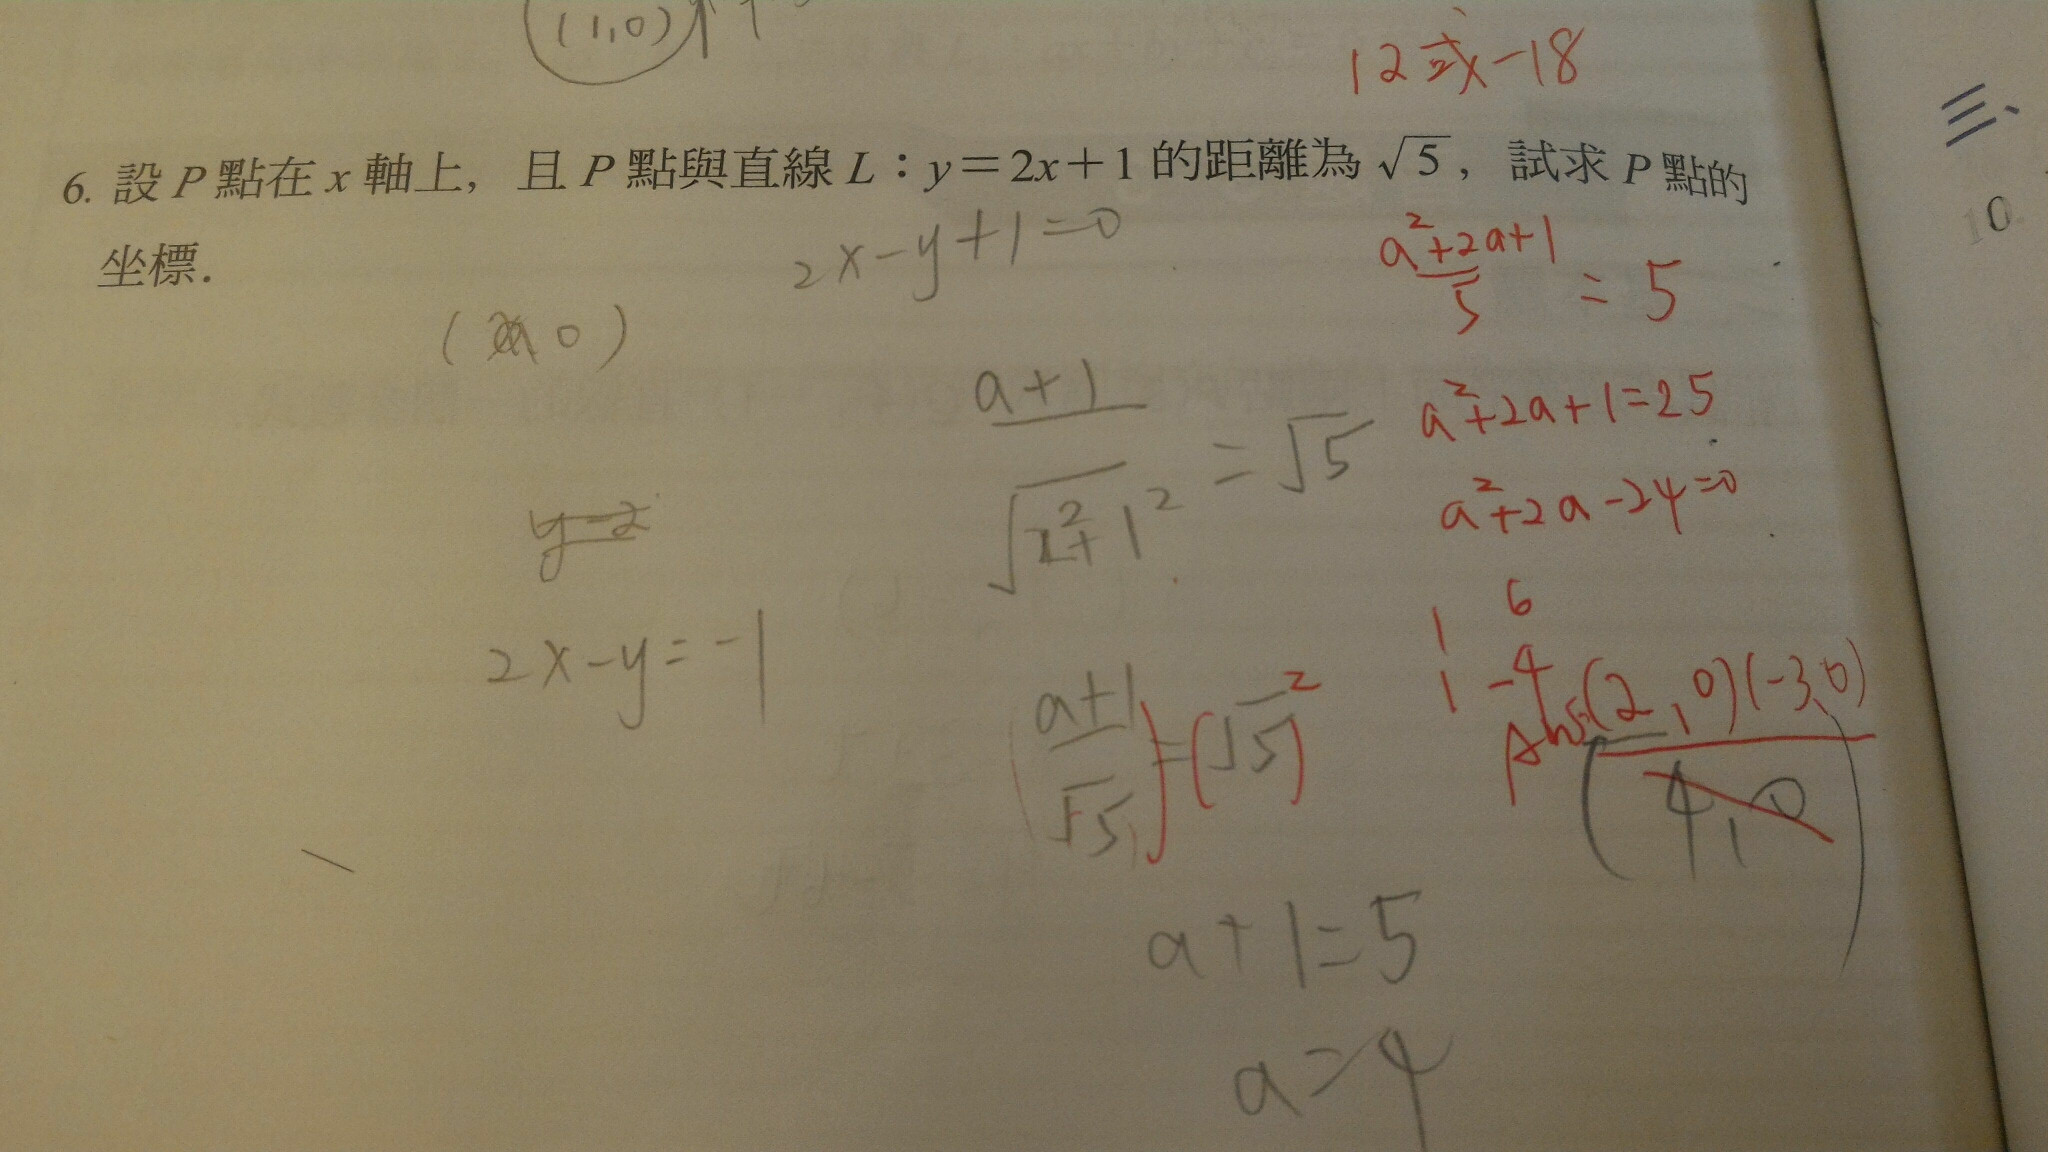 (1,0)
12或-18
三、
6. 設 P 點在 x 軸上, 且 P 點與直線 L：y＝2x＋1 的距離為 √5, 試求 P 點的
坐標.
10.
2x-y+1=0
(a 0)
a+1
√2²+1² =√5
y=2
2x-y=-1
(a+1/√5)=(√5)²
a+1=5
a=4
a²+2a+1
5 = 5
a²+2a+1=25
a²+2a-24=0
1 6
1 -4
Ans(2,0)(-3,0)
(4,0)